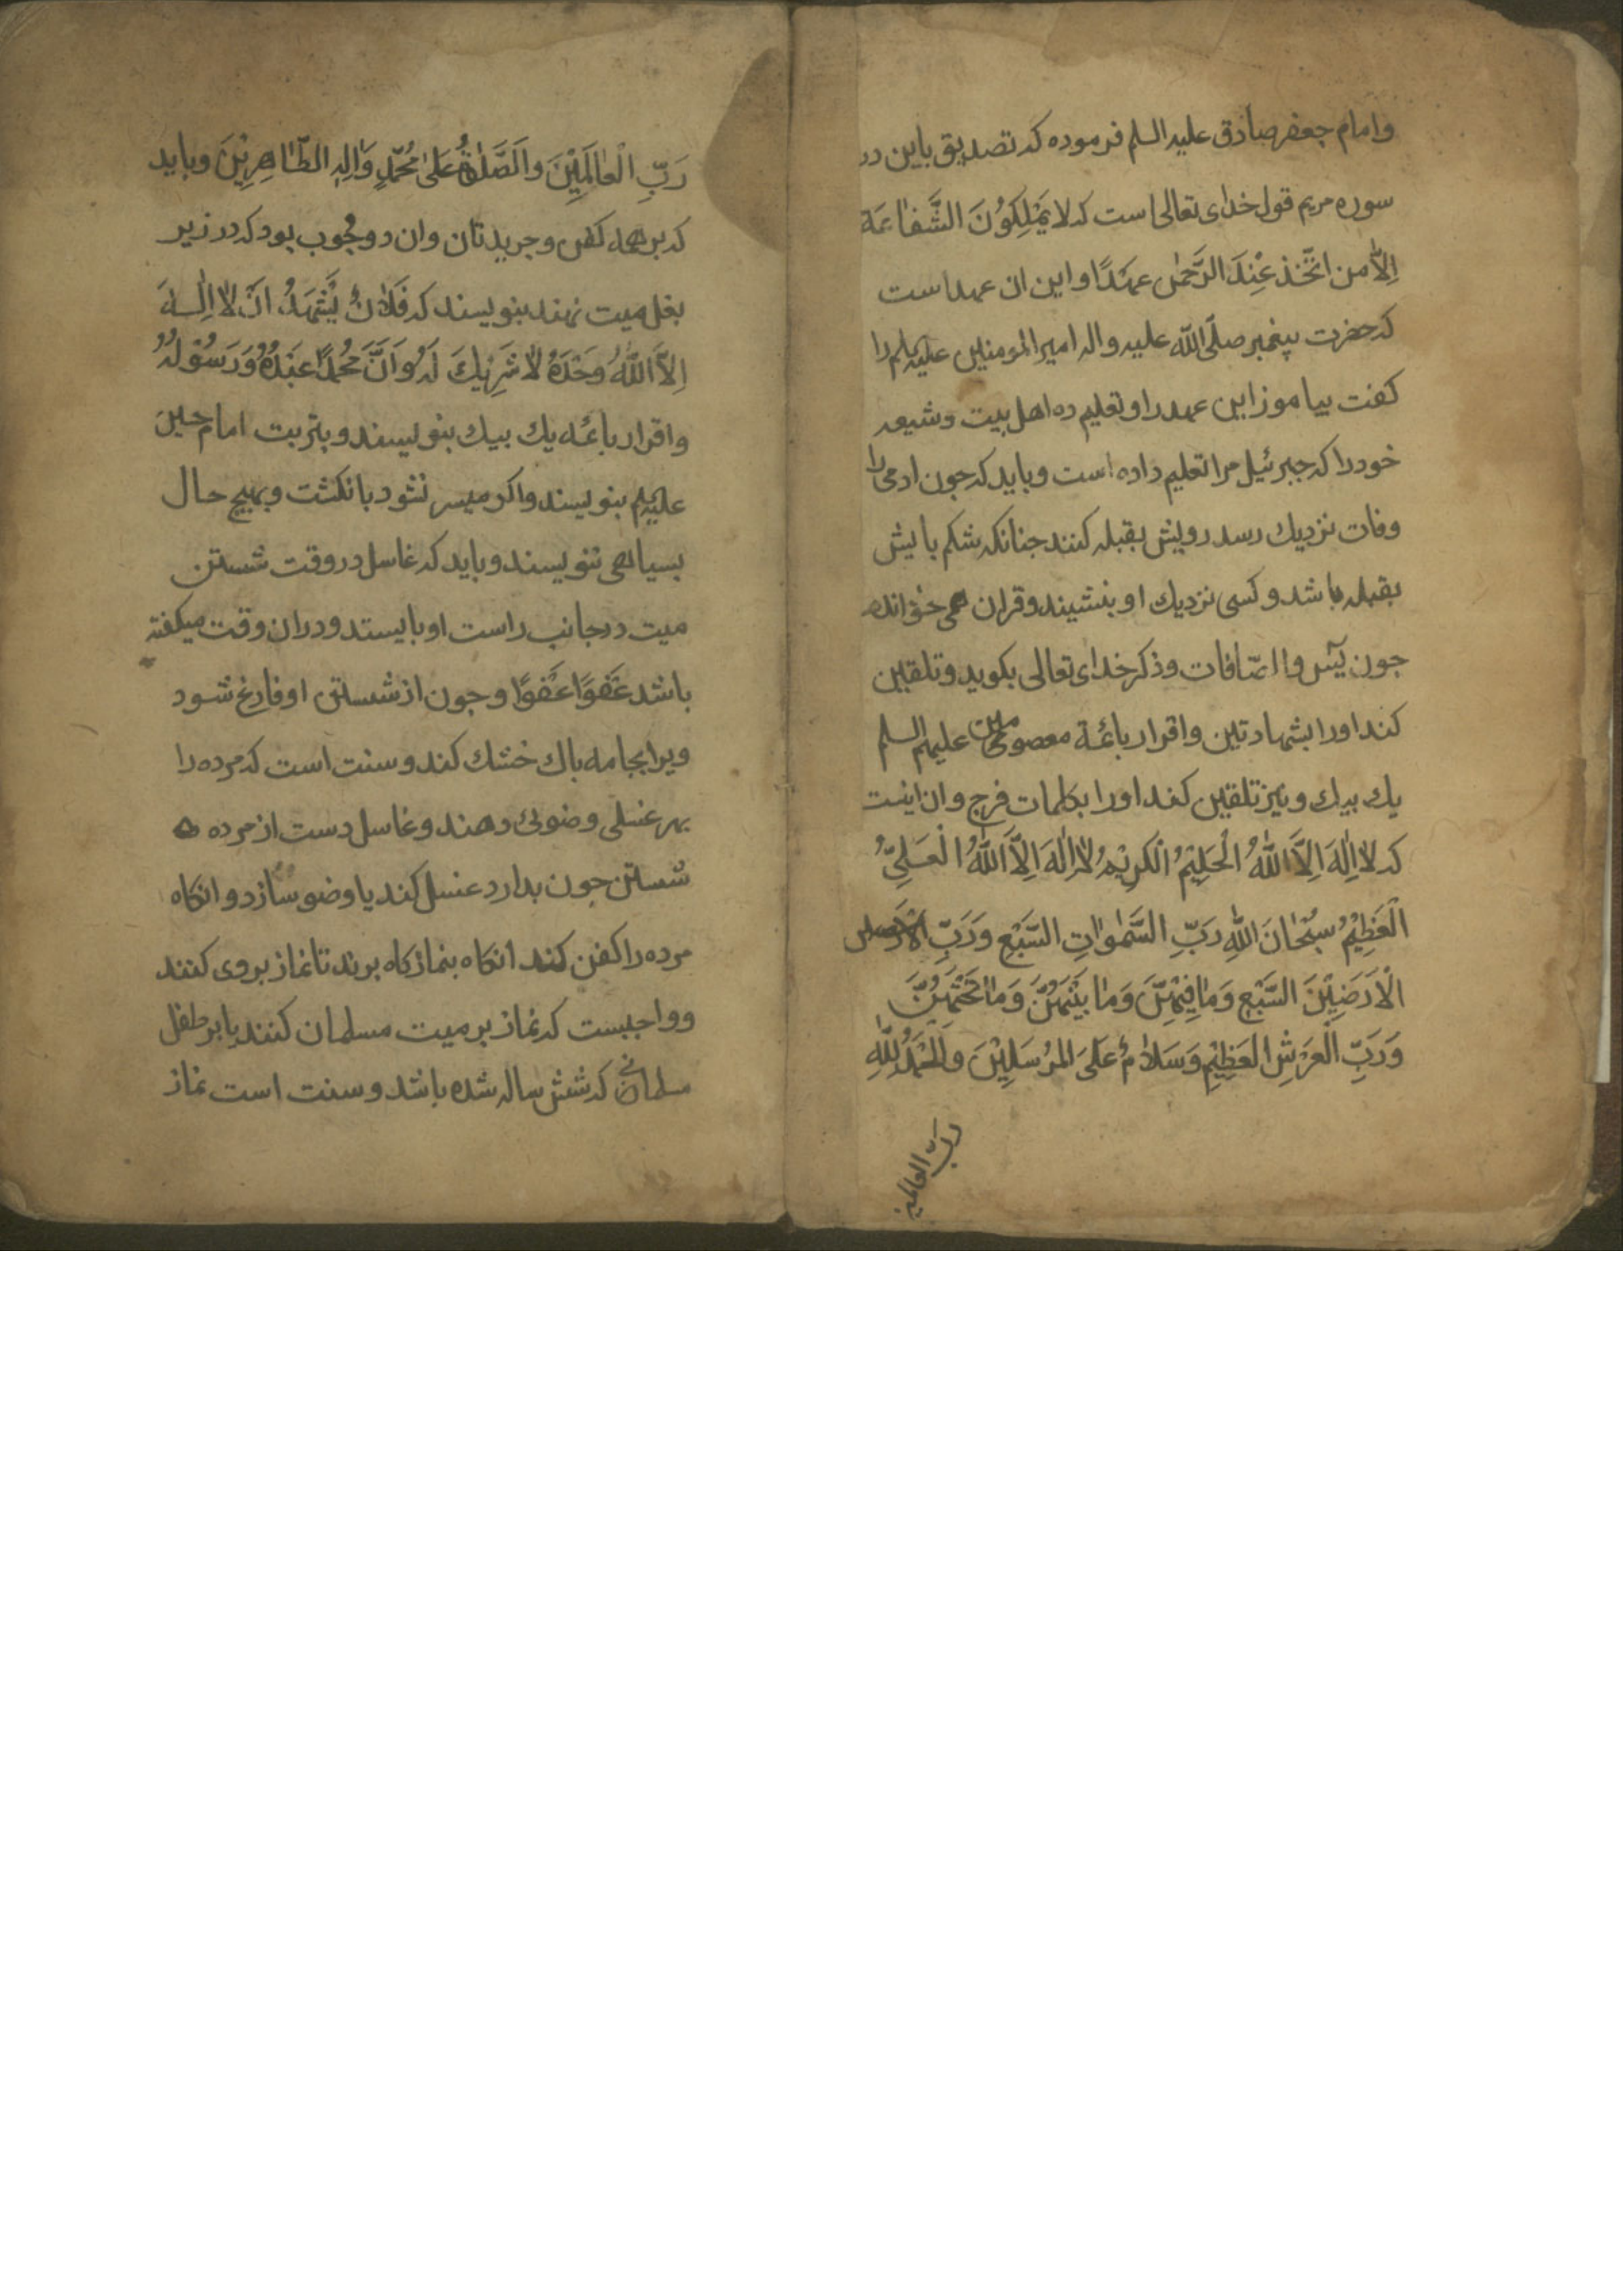 وامام جعفر صادق علیه السلم فرموده که تصدیق باین در
سوره مریم قول خدای تعالی است که لا یَمْلِکُونَ الشَّفٰاعَة
اِلاّٰ من اتَّخَذ عِنْدَ الرَّحْمٰن عَهْدًا و این ان عهد است
که حضرت پیغمبر صلّی اللّٰه علیه واله امیر المومنین علیه السلم را
کفت بیاموز این عهد را و تعلیم ده اهل بیت وشیعه
خود را که جبرئیل مرا تعلیم داده است وباید که جون ادمی را
وفات نزدیك رسد رویش بقبله کنند جنانکه شکم پایش
بقبله باشد و کسی نزدیك او بنشیند وقران همی خواند
جون یٓس والصّافات وذکر خدای تعالی بکوید وتلقین
کند اورا بشهادتین واقرار بائمة معصومین علیهم السلم
یك بیك ونیز تلقین کند اورا بکلمات فرج وان اینست
که لاٰ اِلٰهَ اِلاَّ اللّٰهُ الْحَلِیْمُ الْکَرِیْمُ لاٰ اِلٰهَ اِلاَّ اللّٰهُ الْعَلِیُّ
الْعَظِیْمُ سُبْحٰانَ اللّٰهِ رَبِّ السَّمٰوٰاتِ السَّبْعِ وَرَبِّ
الْاَرَضِیْنَ السَّبْعِ وَمٰا فِیْهِنَّ وَمٰا بَیْنَهُنَّ وَمٰا تَحْتَهُنَّ
وَرَبِّ الْعَرْشِ الْعَظِیْمِ وَسَلاٰمٌ عَلَی الْمُرْسَلِیْنَ وَالْحَمْدُ لِلّٰهِ
ربّ العالمین
رَبِّ الْعٰالَمِیْنَ والَصَّلٰوةُ عَلیٰ مُحَمَّدٍ وَاٰلِهِ الطّٰاهِرِیْنَ وباید
که بر همه کفن وجریدتان وان دو چوب بود که در زیر
بغل میت نهند بنویسند که فَلاٰنٌ یَشْهَدُ اَنْ لاٰ اِلٰهَ
اِلاَّ اللّٰهُ وَحْدَهُ لاٰ شَرِیْكَ لَهُ وَاَنَّ مُحَمَّدًا عَبْدُهُ وَرَسُوْلُهُ
واقرار بائمه یك بیك بنویسند و بتربت امام حسین
علیه السلم بنویسند واکر میسر نشود بانکشت وبهیچ حال
بسیاهی ننویسند وباید که غاسل در وقت شستن
میت در جانب راست او بایستد و دران وقت میکفته
باشد عَفْوًا عَفْوًا وجون از شستن او فارغ شود
ویرا بجامه پاك خشك کند وسنت است که مرده را
بهر غسلی وضوئی دهند وغاسل دست از مرده
شستن جون بدارد غسل کند یا وضو سازد و انکاه
مرده را کفن کند انکاه بنماز کاه برند تا نماز بر وی کنند
وواجبست که نماز بر میت مسلمان کنند یا بر طفل
مسلمانی که شش ساله شده باشد و سنت است نماز